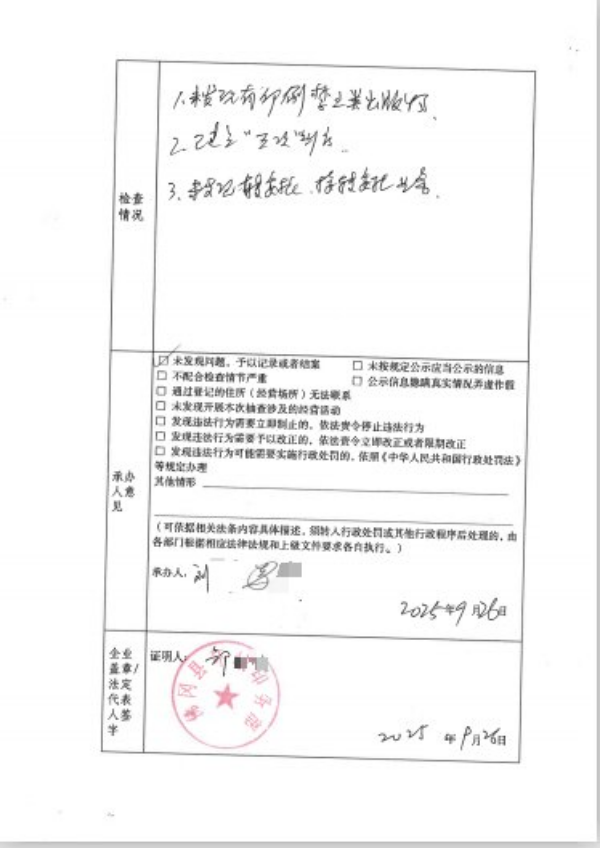 检查情况
1.未发现有印刷禁止类出版物.
2.已建立“五项”制度.
3.未发现转委托、接转委托业务.
承办人意见
☑ 未发现问题，予以记录或者结案
□ 未按规定公示应当公示的信息
□ 不配合检查情节严重
□ 公示信息隐瞒真实情况弄虚作假
□ 通过登记的住所（经营场所）无法联系
□ 未发现开展本次抽查涉及的经营活动
□ 发现违法行为需要立即制止的，依法责令停止违法行为
□ 发现违法行为需要予以改正的，依法责令立即改正或者限期改正
□ 发现违法行为可能需要实施行政处罚的，依照《中华人民共和国行政处罚法》
等规定办理
其他情形
（可依据相关法条内容具体描述，须转入行政处罚或其他行政程序后处理的，由
各部门根据相应法律法规和上级文件要求各自执行。）
承办人：刘
2025年9月26日
企业盖章/法定代表人签字
证明人：邹
2025 年9月26日